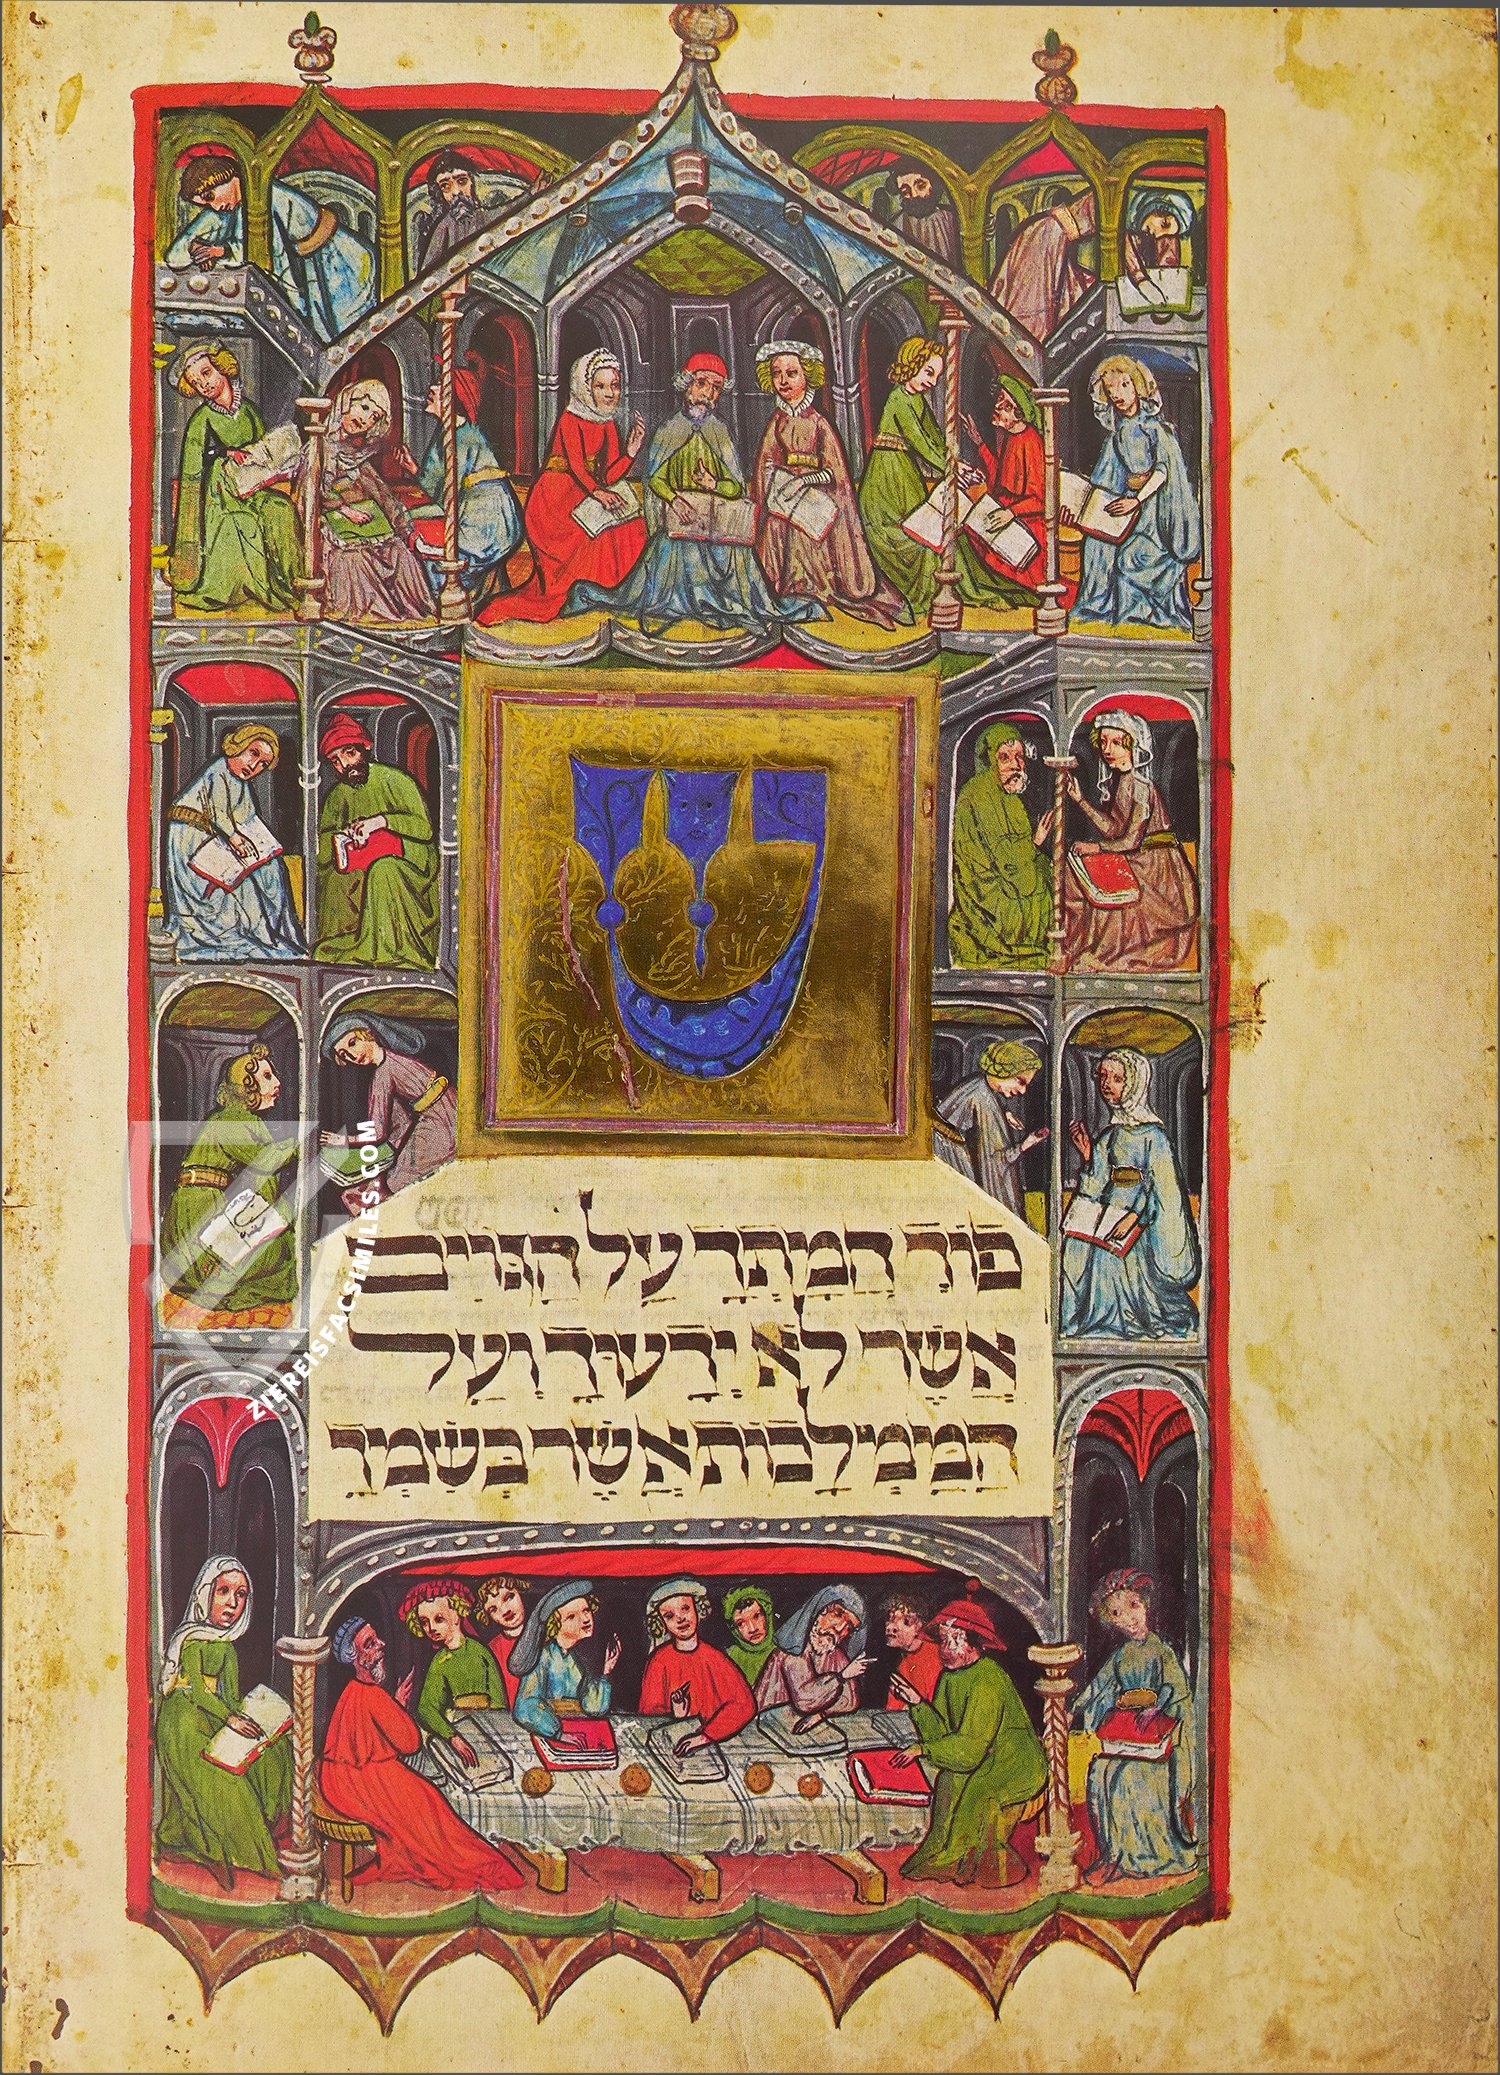 ש
פוך חמתך על הגוים
אשר לא ידעוך ועל
הממלכות אשר בשמך
ZIEREISFACSIMILES.COM